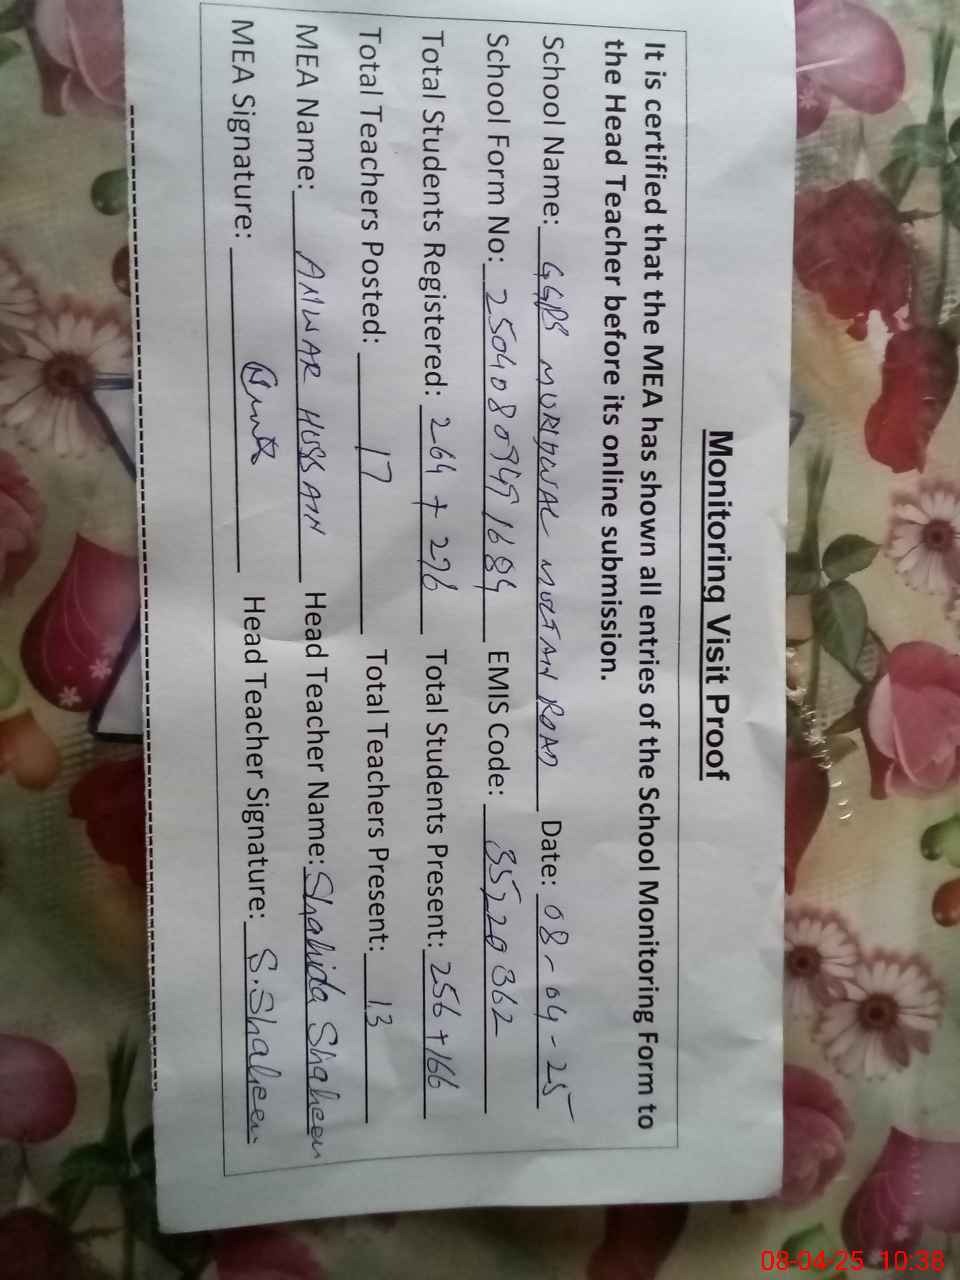 Monitoring Visit Proof
It is certified that the MEA has shown all entries of the School Monitoring Form to
the Head Teacher before its online submission.
School Name: GGPS MURIDWAL MULTAN ROAD Date: 08-04-25
School Form No: 25040809491684 EMIS Code: 35220362
Total Students Registered: 264 + 276 Total Students Present: 256 + 166
Total Teachers Posted: 17 Total Teachers Present: 13
MEA Name: ANWAR HUSSAIN Head Teacher Name: Shahida Shaheen
MEA Signature: Head Teacher Signature: S. Shaheen
08-04-25 10:38